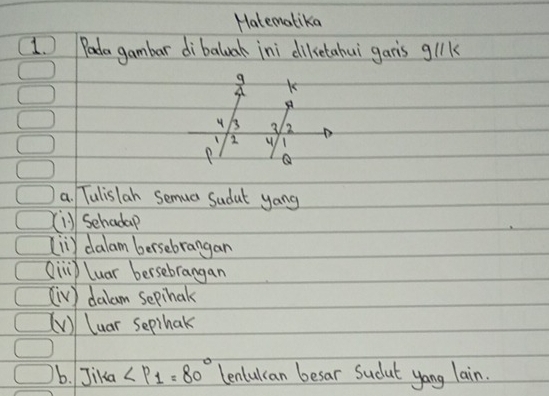 Matematika
1. Pada gambar di bawah ini diketahui garis g//k
g k
4 3 3 2
1 2 4 1
P Q
a. Tulislah semua sudut yang
(i) Sehadap
(ii) dalam bersebrangan
(iii) luar bersebrangan
(iv) dalam sepihak
(v) luar sepihak
b. Jika < P1 = 80° tentukan besar sudut yang lain.